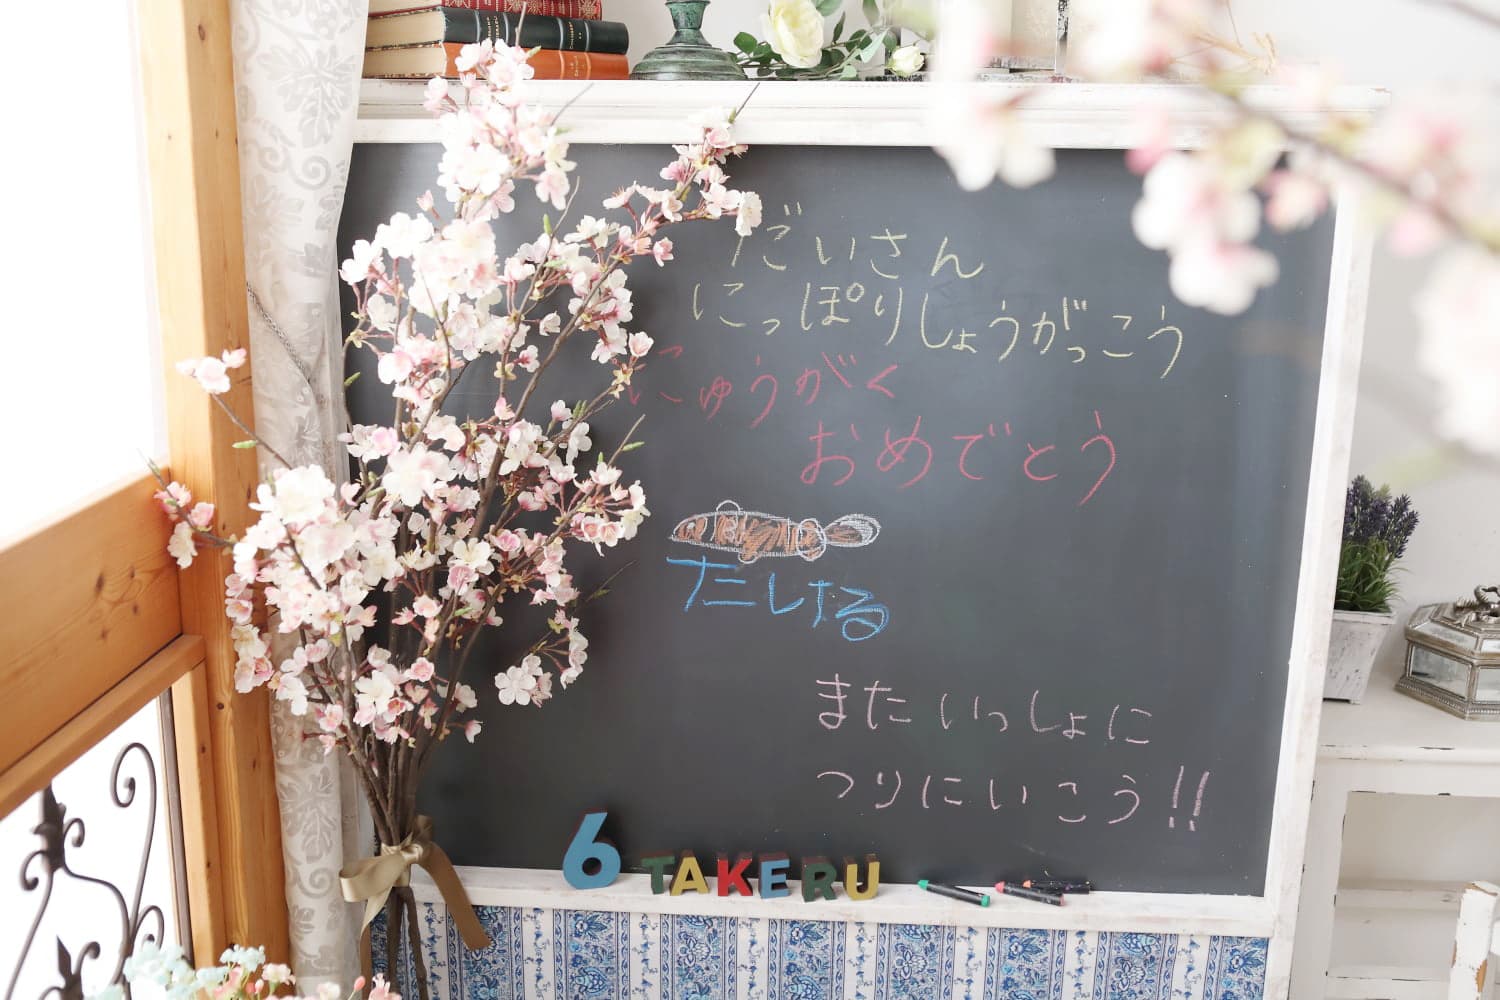 だいさん
にっぽりしょうがっこう
にゅうがく
おめでとう
たけしる
またいっしょに
つりにいこう!!
6 TAKERU